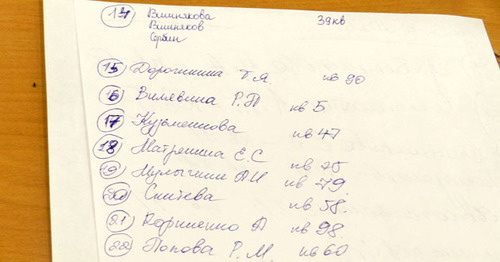 14 Вишнякова 39 кв
Вишняков
Сербин
15 Дорошина Т.Я кв 90
16 Вилявина Р.П кв 5
17 Кузьменкова кв 47
18 Матрешина Е.С кв 75
19 А.И кв 79.
20 кв 58.
21 Корниенко А кв 98.
22 Попова Р.М. кв 60